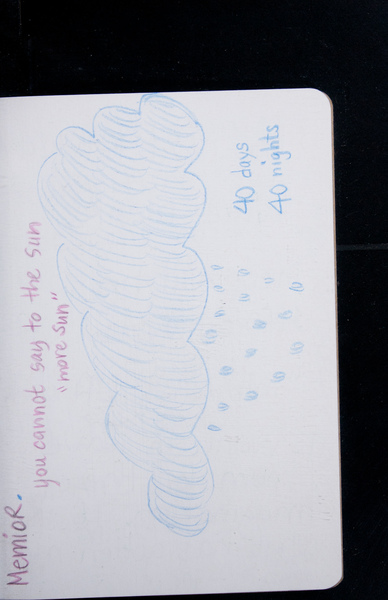 MemioR.
you cannot say to the sun
"more sun"
40 days
40 nights